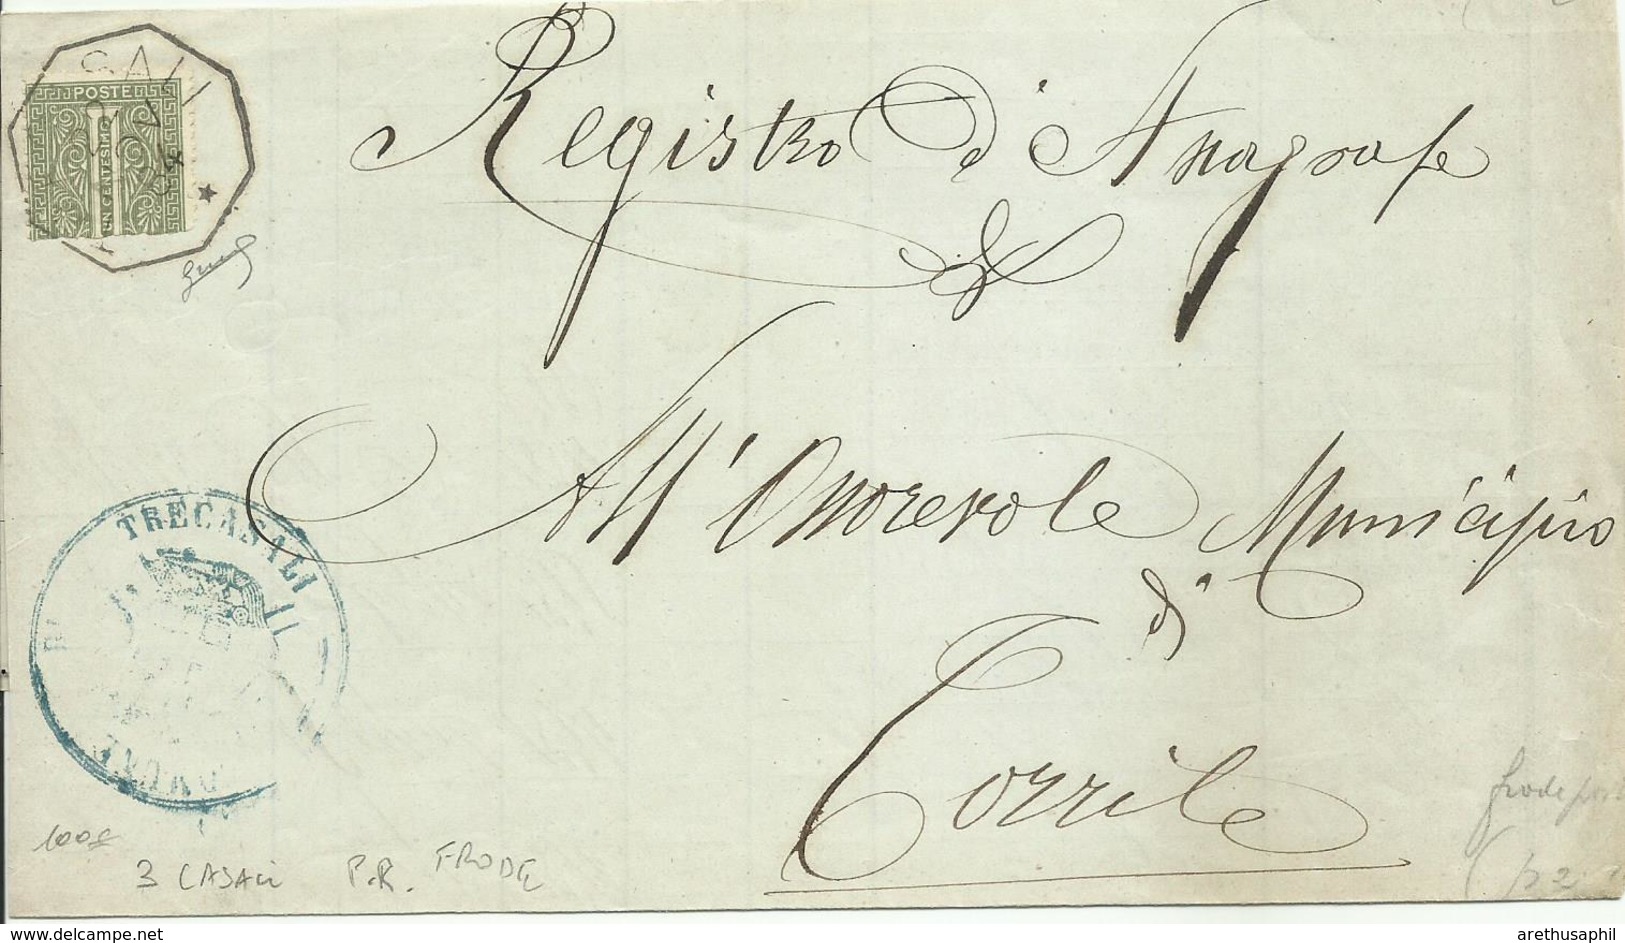 CALI
POSTE
UN CENTESIMO
Registro d'Anagrafe
All'Onorevole Municipio
di
Torrile
TRECASALI
100€
3 CASALI P.R. FRODE
frode post
www.delcampe.net arethusaphil